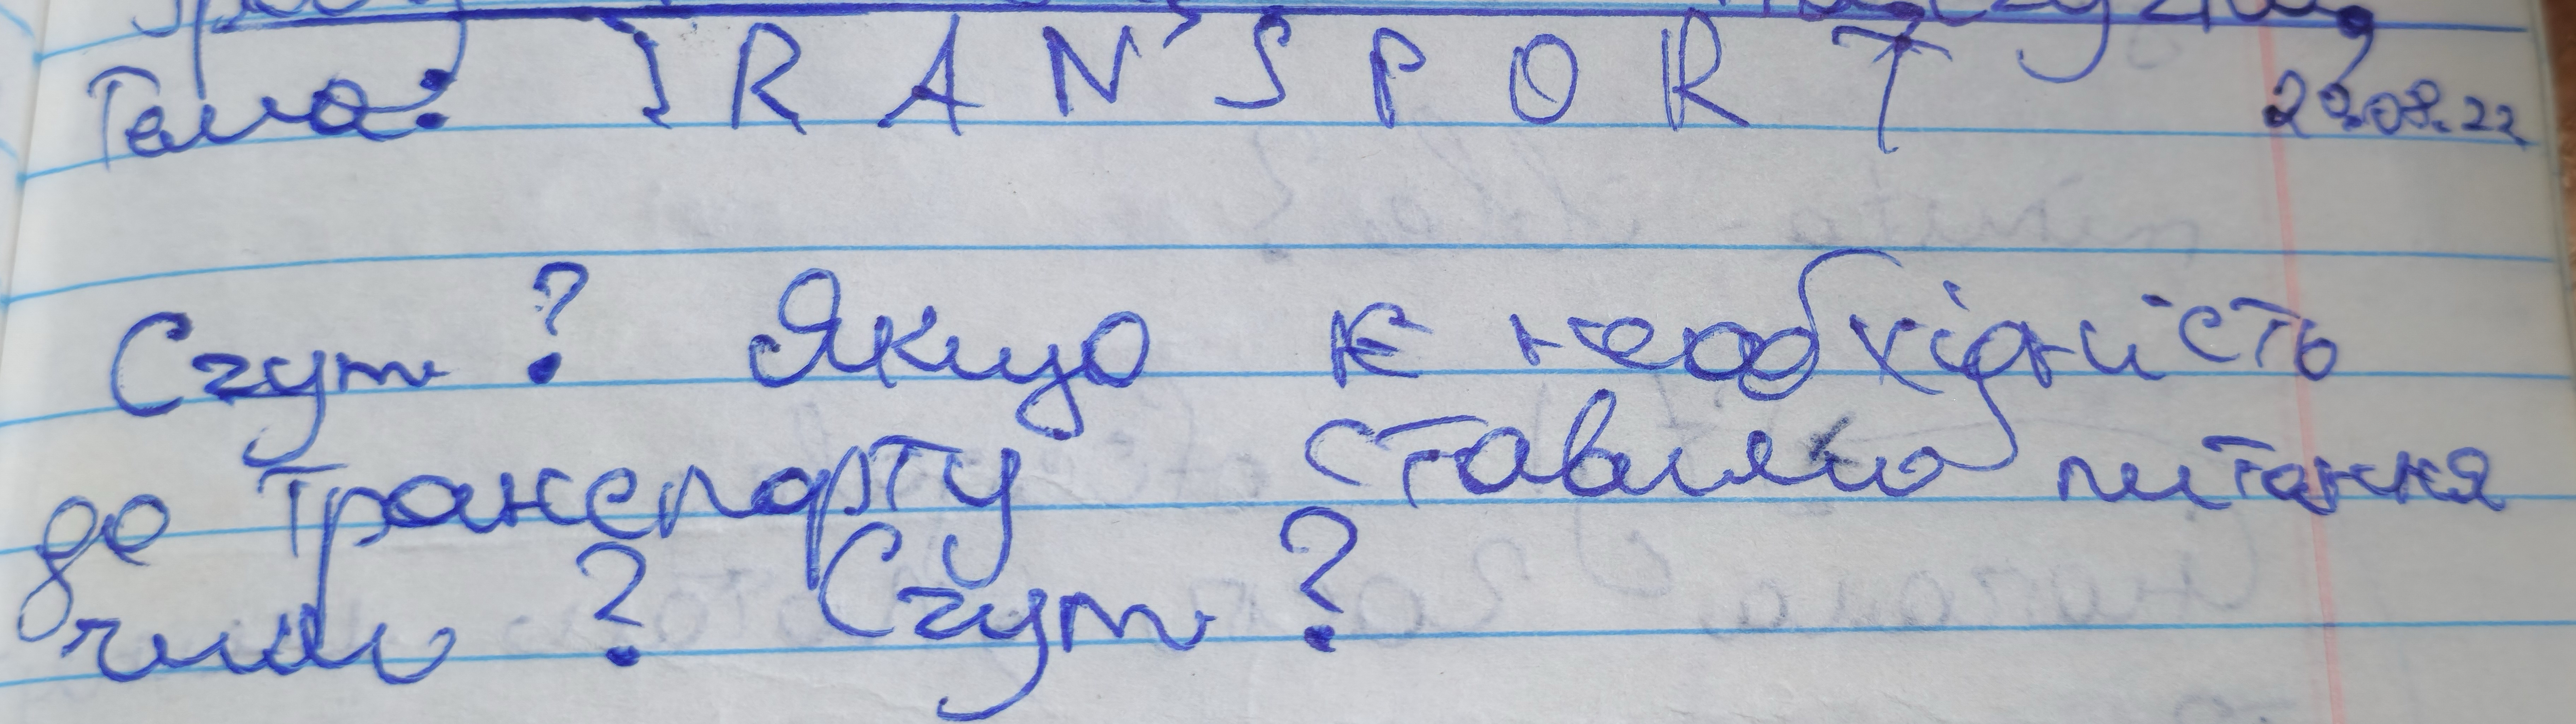 Тема: TRANSPORT 29.08.22
Czym? Якщо є необхідність
до транспорту ставимо питання
чим? Czym?